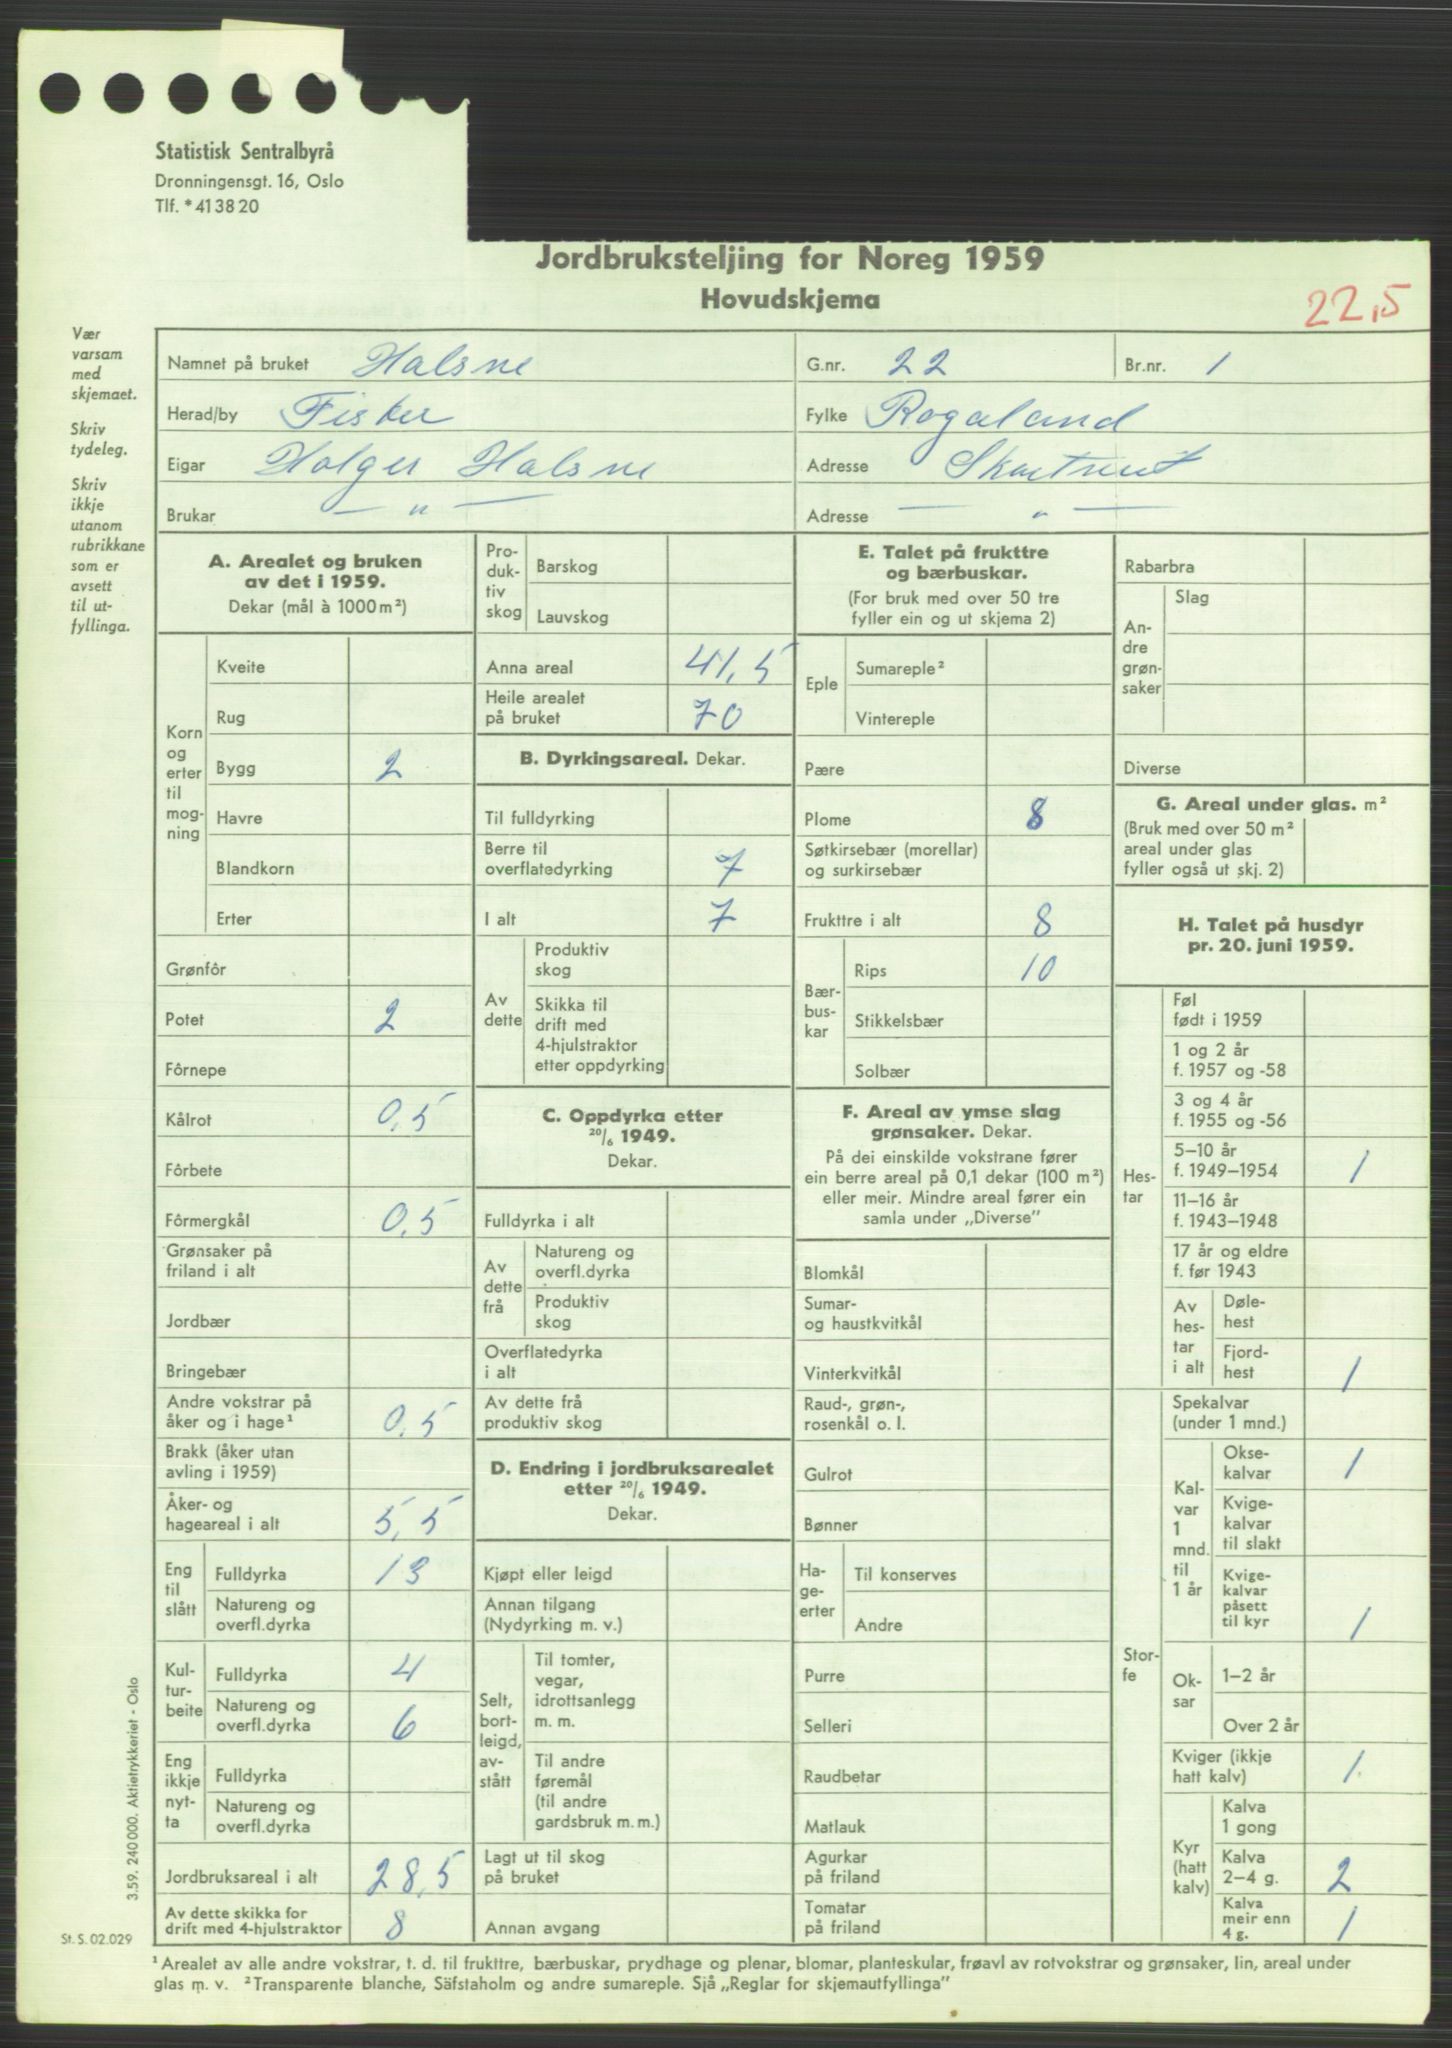 Statistisk Sentralbyrå
Dronningensgt. 16, Oslo
Tlf. *413820
Jordbruksteljing for Noreg 1959
Hovudskjema
22,5
Vær
varsam
med
skjemaet.
Skriv
tydeleg.
Skriv
ikkje
utanom
rubrikkane
som er
avsett
til ut-
fyllinga.
Namnet på bruket Halsne
G.nr. 22
Br.nr. 1
Herad/by Fister
Fylke Rogaland
Eigar Holger Halsne
Adresse
Brukar — " —
Adresse — " —
A. Arealet og bruken
av det i 1959.
Dekar (mål à 1000 m²)
Korn
og
erter
til
mog-
ning
Kveite
Rug
Bygg 2
Havre
Blandkorn
Erter
Grønfôr
Potet 2
Fôrnepe
Kålrot 0,5
Fôrbete
Fôrmergkål 0,5
Grønsaker på
friland i alt
Jordbær
Bringebær
Andre vokstrar på
åker og i hage¹ 0,5
Brakk (åker utan
avling i 1959)
Åker- og
hageareal i alt 5,5
Eng
til
slått
Fulldyrka 13
Natureng og
overfl.dyrka
Kul-
tur-
beite
Fulldyrka 4
Natureng og
overfl.dyrka 6
Eng
ikkje
nyt-
ta
Fulldyrka
Natureng og
overfl.dyrka
Jordbruksareal i alt 28,5
Av dette skikka for
drift med 4-hjulstraktor 8
Pro-
duk-
tiv
skog
Barskog
Lauvskog
Anna areal 41,5
Heile arealet
på bruket 70
B. Dyrkingsareal. Dekar.
Til fulldyrking
Berre til
overflatedyrking 7
I alt 7
Av
dette
Produktiv
skog
Skikka til
drift med
4-hjulstraktor
etter oppdyrking
C. Oppdyrka etter
20/6 1949.
Dekar.
Fulldyrka i alt
Av
dette
frå
Natureng og
overfl.dyrka
Produktiv
skog
Overflatedyrka
i alt
Av dette frå
produktiv skog
D. Endring i jordbruksarealet
etter 20/6 1949.
Dekar.
Kjøpt eller leigd
Annan tilgang
(Nydyrking m. v.)
Selt,
bort-
leigd,
av-
stått
Til tomter,
vegar,
idrottsanlegg
m. m.
Til andre
føremål
(til andre
gardsbruk m. m.)
Lagt ut til skog
på bruket
Annan avgang
E. Talet på frukttre
og bærbuskar.
(For bruk med over 50 tre
fyller ein og ut skjema 2)
Eple
Sumareple²
Vintereple
Pære
Plome 8
Søtkirsebær (morellar)
og surkirsebær
Frukttre i alt 8
Bær-
bus-
kar
Rips 10
Stikkelsbær
Solbær
F. Areal av ymse slag
grønsaker. Dekar.
På dei einskilde vokstrane fører
ein berre areal på 0,1 dekar (100 m²)
eller meir. Mindre areal fører ein
samla under „Diverse”
Blomkål
Sumar-
og haustkvitkål
Vinterkvitkål
Raud-, grøn-,
rosenkål o. l.
Gulrot
Bønner
Ha-
ge-
erter
Til konserves
Andre
Purre
Selleri
Raudbetar
Matlauk
Agurkar
på friland
Tomatar
på friland
Rabarbra
An-
dre
grøn-
saker
Slag
Diverse
G. Areal under glas. m²
(Bruk med over 50 m²
areal under glas
fyller også ut skj. 2)
H. Talet på husdyr
pr. 20. juni 1959.
Hes-
tar
Føl
født i 1959
1 og 2 år
f. 1957 og -58
3 og 4 år
f. 1955 og -56
5–10 år
f. 1949–1954 1
11–16 år
f. 1943–1948
17 år og eldre
f. før 1943
Av
hes-
tar
i alt
Døle-
hest
Fjord-
hest 1
Stor-
fe
Spekalvar
(under 1 mnd.)
Kal-
var
1
mnd.
til
1 år
Okse-
kalvar 1
Kvige-
kalvar
til slakt
Kvige-
kalvar
påsett
til kyr 1
Ok-
sar
1–2 år
Over 2 år
Kviger (ikkje
hatt kalv) 1
Kyr
(hatt
kalv)
Kalva
1 gong
Kalva
2–4 g. 2
Kalva
meir enn
4 g. 1
3.59. 240000. Aktietrykkeriet - Oslo
St. S. 02.029
¹ Arealet av alle andre vokstrar, t. d. til frukttre, bærbuskar, prydhage og plenar, blomar, planteskular, frøavl av rotvokstrar og grønsaker, lin, areal under
glas m. v. ² Transparente blanche, Säfstaholm og andre sumareple. Sjå „Reglar for skjemautfyllinga”